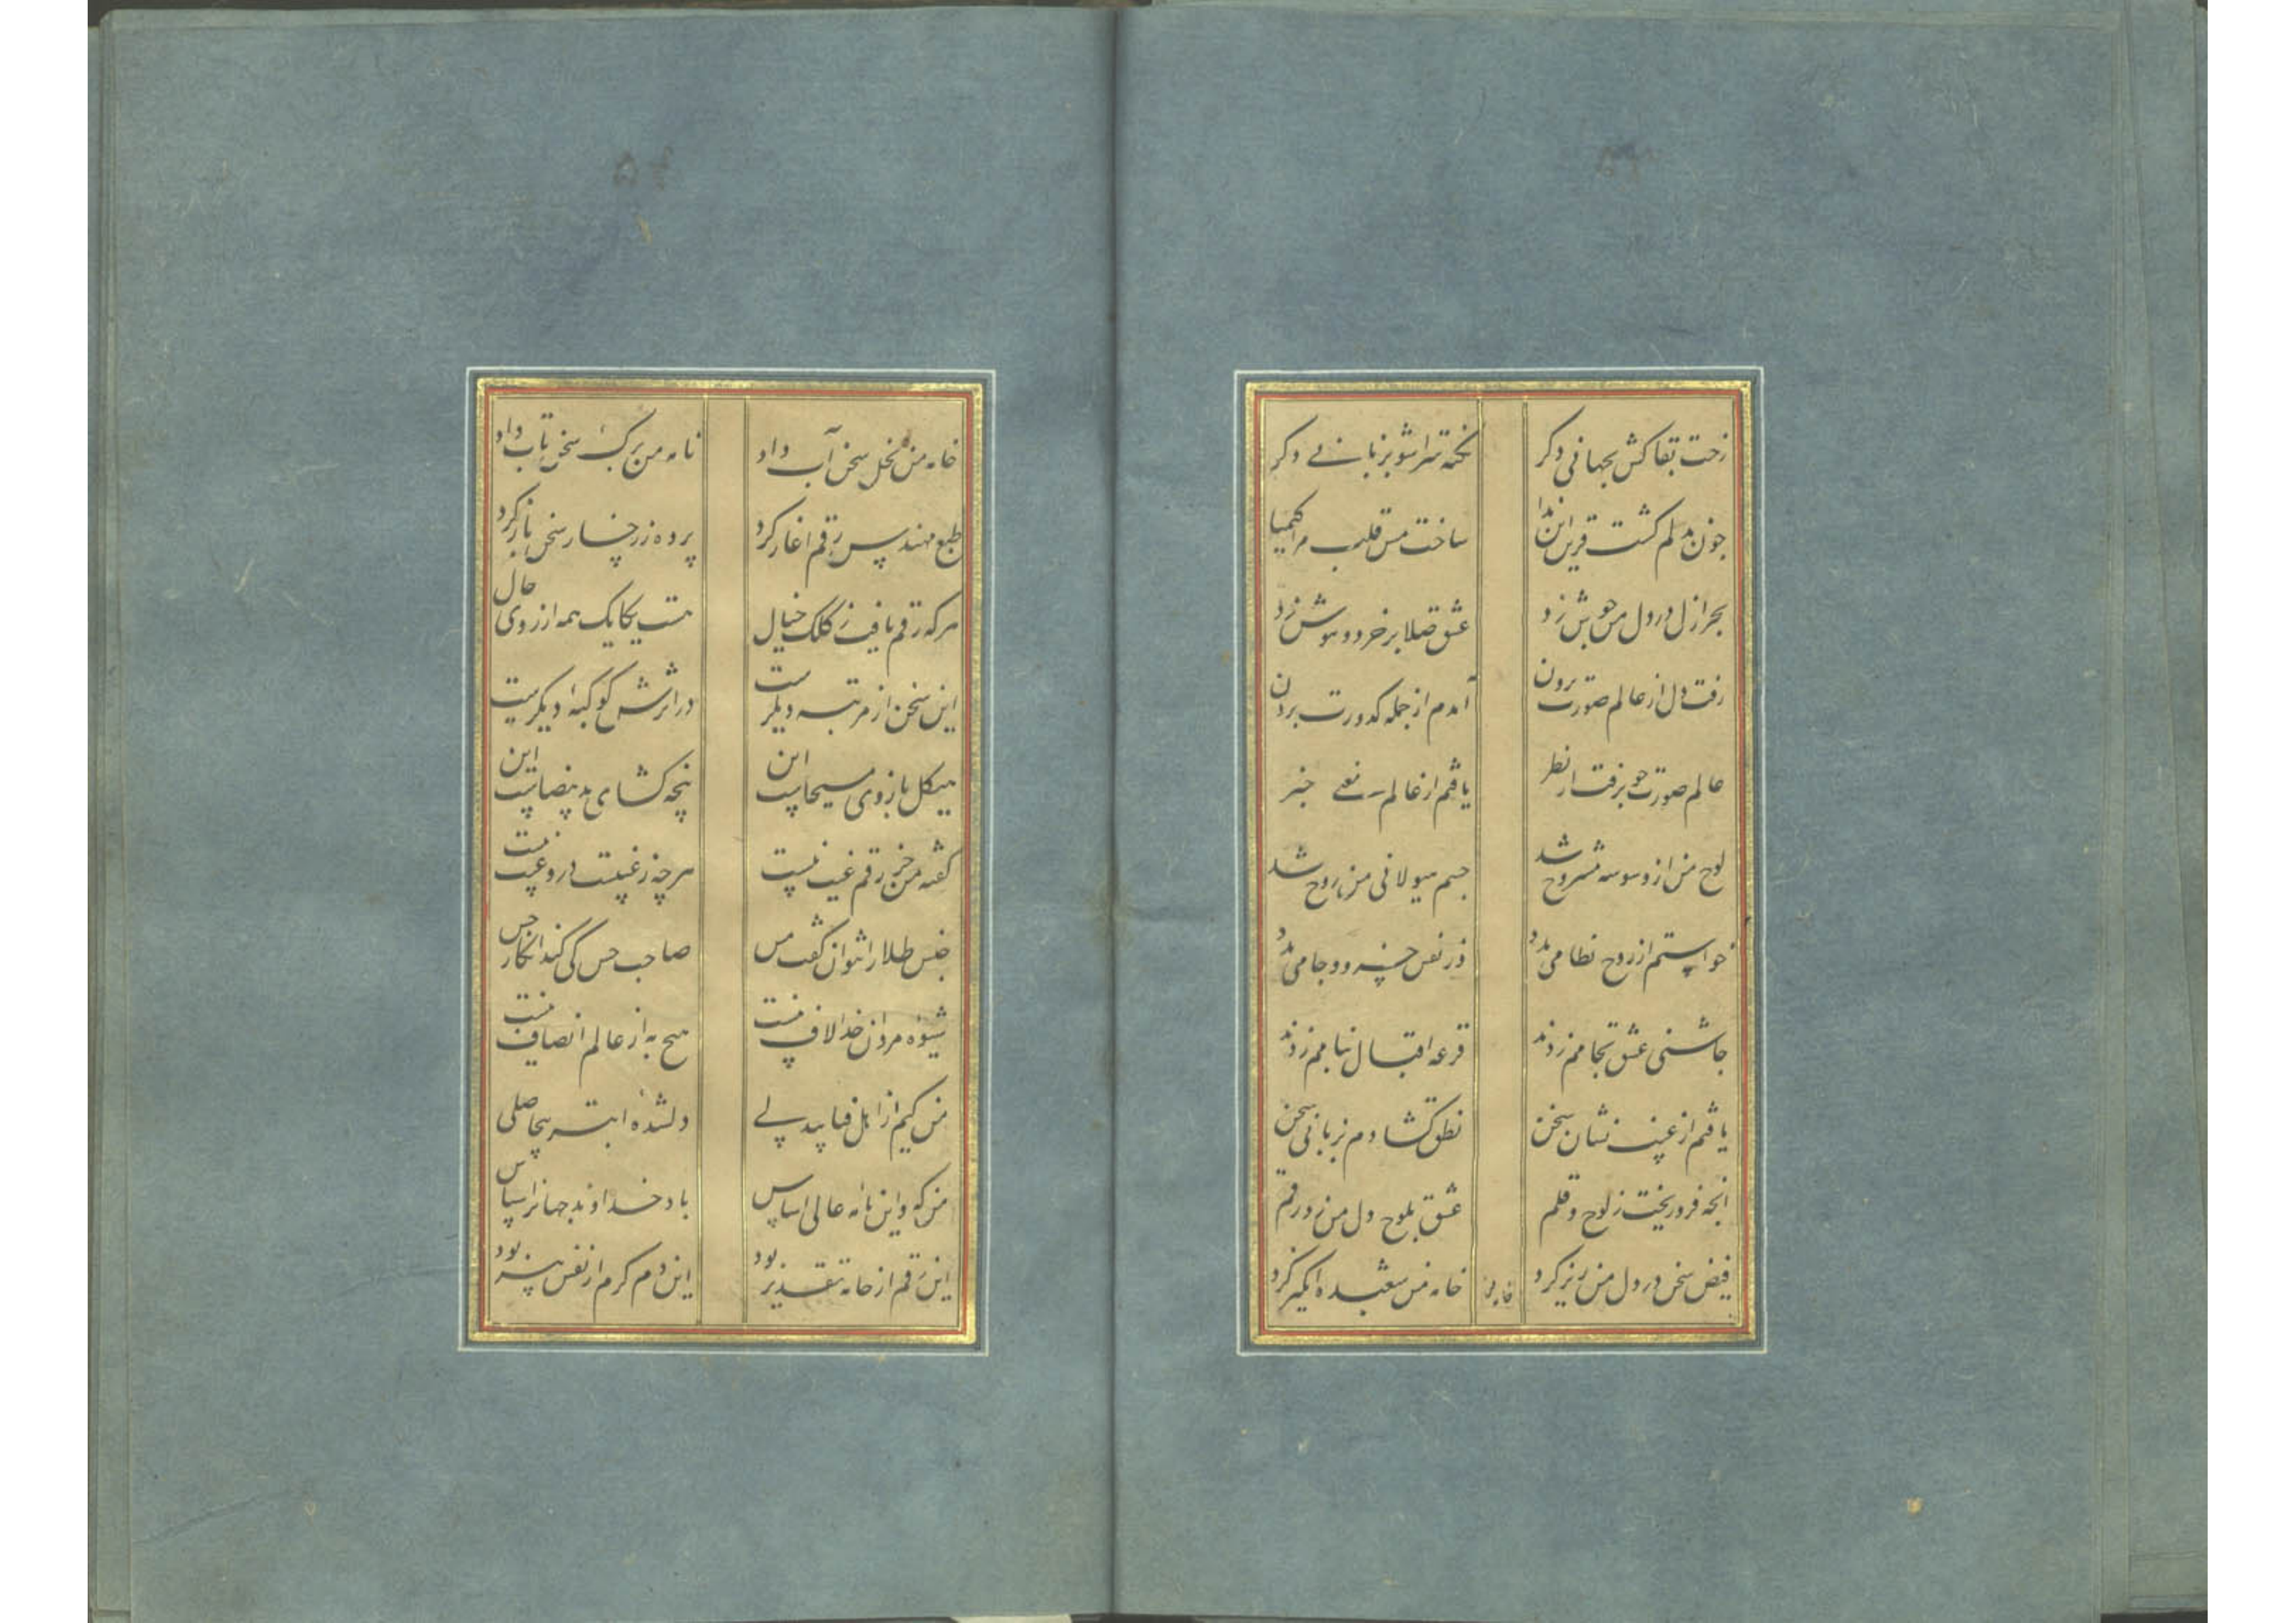 رخت بقا کش بجهانی دکر نکته سرا شو بزبانے دکر
چون بدلم کشت قرین این ندا ساخت مس قلب مرا کیمیا
بحر ازل در دل من جوش زد عشق صلا بر خرد و هوش زد
رفت دل از عالم صورت برون آمدم از جمله کدورت برون
عالم صورت چو برفت از نظر یافتم از عالم معنے خبر
لوح من از وسوسه مشروح شد جسم هیولانی من روح شد
خواستم از روح نظامی مدد وز نفس خسرو و جامی مدد
چاشنی عشق بجامم زدند قرعه اقبال بنامم زدند
یافتم از غیب نشان سخن نطق کشادم بزبانی سخن
انچه فرو ریخت ز لوح و قلم عشق بلوح دل من زد رقم
فیض سخن در دل من ریز کرد خامه من شعبده انکیز کرد
خامه من
خامه من نخل سخن آب داد نامه من برک سخن تاب داد
طبع مهندس رقم آغاز کرد پرده ز رخسار سخن باز کرد
هر که رقم یافت ز کلک خیال هست یکایک همه از روی حال
این سخن از مرتبه دیکرست در اثرش کوکبه دیکرست
هیکل بازوی مسیحاست این پنجه کشای ید بیضاست این
کفته من جز رقم غیب نیست هر چه ز غیبست درو عیب نیست
جنس طلا را نتوان کفت مس صاحب حس کی کند انکار حس
شیوه مردان خدا لاف نیست هیچ به از عالم انصاف نیست
من کیم از اهل فنا بیدلے دلشده ابتر بیحاصلی
من که و این نامه عالی اساس باد خداوند جهانرا سپاس
این رقم از خامه تقدیر بود این دم کرم از نفس پیر بود